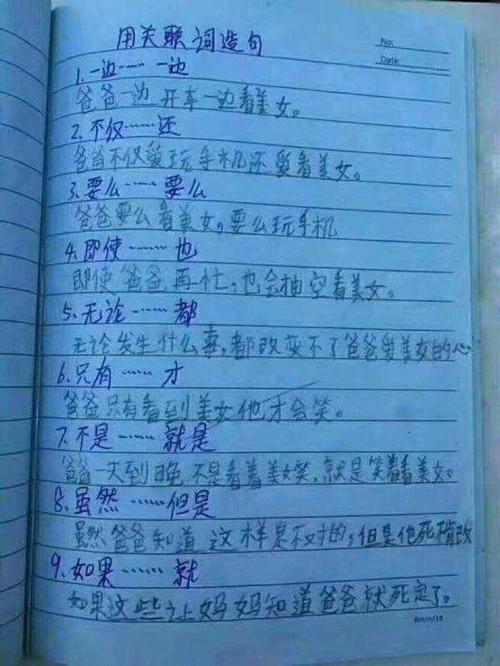 用关联词造句
No:
Date
1.一边……一边
爸爸一边开车一边看美女。
2.不仅……还
爸爸不仅爱玩手机还爱看美女。
3.要么……要么
爸爸要么看美女,要么玩手机
4.即使……也
即使爸爸再忙,也会抽空看美女。
5.无论……都
无论发生什么事,都改变不了爸爸爱美女的心
6.只有……才
爸爸只有看到美女他才会笑。
7.不是……就是
爸爸一天到晚不是看着美女笑,就是笑着看美女。
8.虽然……但是
虽然爸爸知道这样是不对的,但是他死不肯改
9.如果……就
如果这些让妈妈知道爸爸就死定了。